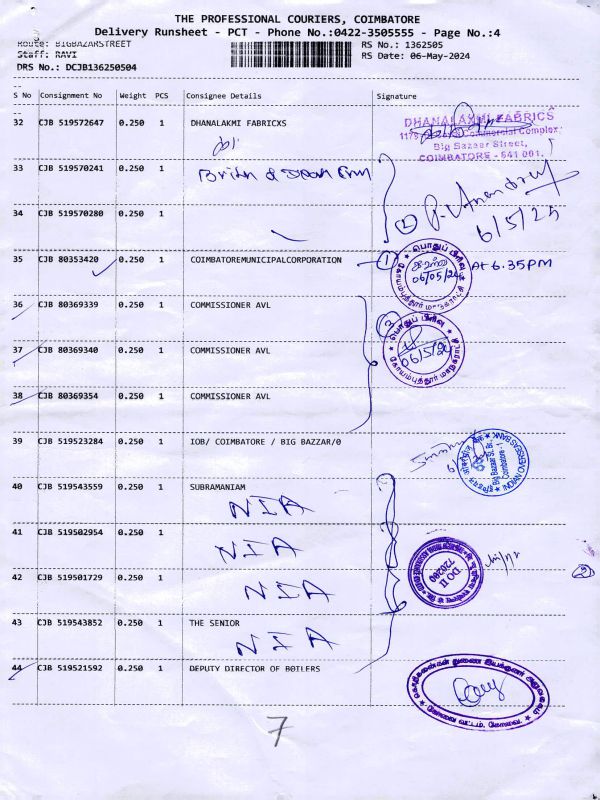 THE PROFESSIONAL COURIERS, COIMBATORE
Delivery Runsheet - PCT - Phone No.:0422-3505555 - Page No.:4
Route: BIGBAZARSTREET
RS No.: 1362505
Staff: RAVI
RS Date: 06-May-2024
DRS No.: DCJB136250504
S No Consignment No Weight PCS Consignee Details Signature
32 CJB 519572647 0.250 1 DHANALAKMI FABRICXS
DHANALAXMI FABRICS
Commercial Complex,
Big Bazaar Street,
COIMBATORE - 641 001.
33 CJB 519570241 0.250 1
34 CJB 519570280 0.250 1
2
6/5/24
35 CJB 80353420 0.250 1 COIMBATOREMUNICIPALCORPORATION
1
பொதுப் பிரிவு
06/05/24
At 6.35PM
36 CJB 80369339 0.250 1 COMMISSIONER AVL
பொதுப் பிரிவு
06/5/24
37 CJB 80369340 0.250 1 COMMISSIONER AVL
38 CJB 80369354 0.250 1 COMMISSIONER AVL
39 CJB 519523284 0.250 1 IOB/ COIMBATORE / BIG BAZZAR/0
INDIAN OVERSEAS BANK
Big Bazaar St. Br.
Coimbatore - 1
40 CJB 519543559 0.250 1 SUBRAMANIAM
NIA
41 CJB 519502954 0.250 1
NIA
DO II
720200
42 CJB 519501729 0.250 1
NIA
43 CJB 519543852 0.250 1 THE SENIOR
NIA
44 CJB 519521592 0.250 1 DEPUTY DIRECTOR OF BOILERS
7